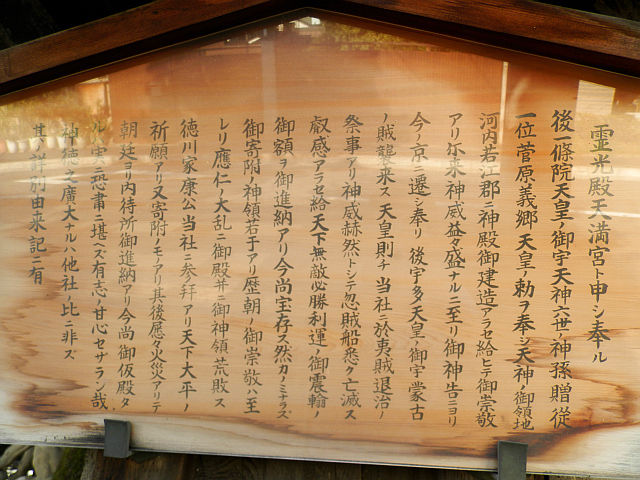 霊光殿天満宮ト申シ奉ル
後一條院天皇ノ御宇天神六世ノ神孫贈従
一位菅原義郷天皇ノ勅ヲ奉シ天神ノ御領地
河内若江郡ニ神殿御建造アラセ給ヒテ御崇敬
アリ尓来神威益々盛ナルニ至リ御神告ニヨリ
今ノ京ニ遷シ奉リ後宇多天皇ノ御宇蒙古
ノ賊襲来ス天皇則チ当社ニ於夷賊退治ノ
祭事アリ神威赫然トシテ忽賊船悉ク亡滅ス
叡感アラセ給天下無敵必勝利運ノ御震翰ノ
御額ヲ御進納アリ今尚宝存ス然カノミナラズ
御寄附ノ神領若干アリ歴朝ノ御崇敬ハ至
レリ應仁ノ大乱ニ御殿并ニ御神領荒敗ス
徳川家康公当社ニ参拜アリ天下大平ノ
祈願アリ又寄附ノモノアリ其後屡々火災アリテ
朝廷ヨリ内待所御進納アリ今尚御仮殿タ
ル実ニ恐粛ニ堪ヘズ有志ノ甘心セサラン哉
神徳之廣大ナルハ他社ノ比ニ非ズ
其ノ詳別由来記ニ有